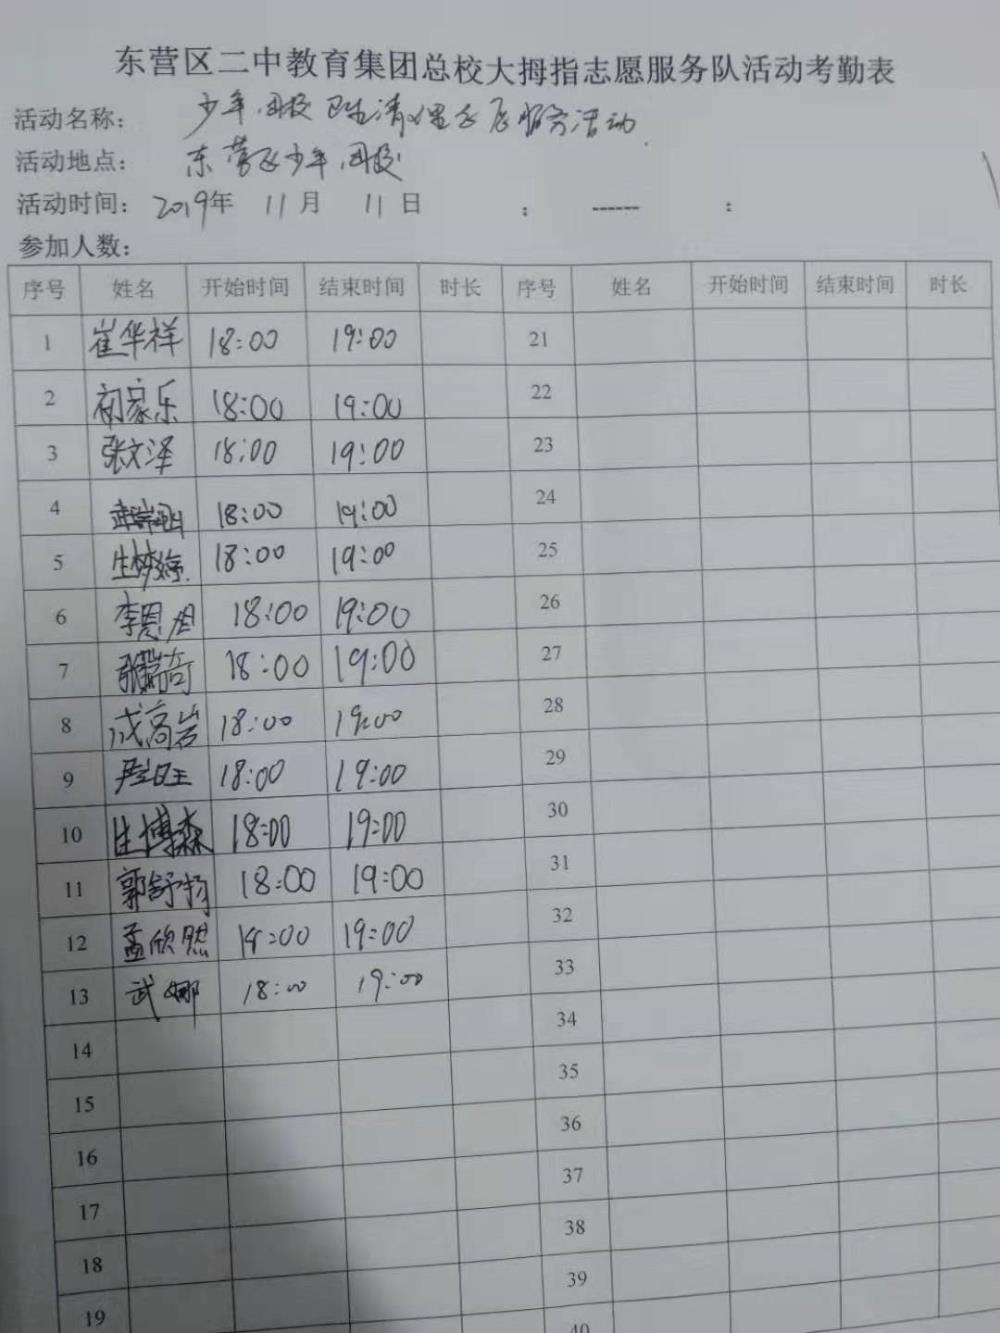 东营区二中教育集团总校大拇指志愿服务队活动考勤表
活动名称： 少年军校卫生清理志愿服务活动
活动地点： 东营区少年军校
活动时间： 2019年 11月 11日 ： ------ ：
参加人数：
序号 姓名 开始时间 结束时间 时长 序号 姓名 开始时间 结束时间 时长
1 崔华祥 18:00 19:00 21
2 初家乐 18:00 19:00 22
3 张文泽 18:00 19:00 23
4 18:00 19:00 24
5 生梦婷 18:00 19:00 25
6 李恩旭 18:00 19:00 26
7 张瑞奇 18:00 19:00 27
8 成高岩 18:00 19:00 28
9 18:00 19:00 29
10 生博森 18:00 19:00 30
11 郭舒扬 18:00 19:00 31
12 孟欣然 18:00 19:00 32
13 武娜 18:00 19:00 33
14 34
15 35
16 36
17 37
18 38
19 39
40